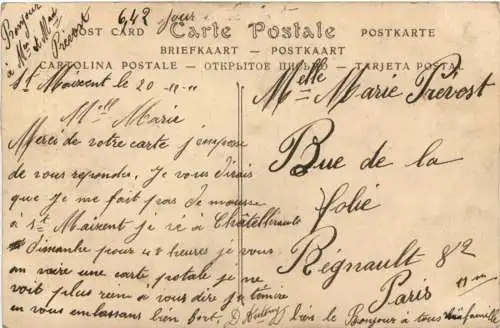 Bonjour
à Mme et Max
Prévost
642
jour
POST CARD Carte Postale POSTKARTE
BRIEFKAART — POSTKAART
CARTOLINA POSTALE — ОТКРЫТОЕ ПИСЬМО — TARJETA POSTAL
St Maixent le 20
Melle Marie
Merci de votre carte j'empose
de vous repondes. Je vous dirais
que je me fait pas de mousse
à St Maixent je ré à Châtellerault
dimanche pour 48 heures je vous
en voire une carte postale je ne
voit plus rien à vous dire je termire
en vous embrassans bien fort.
bien le Bonjour à tous famille
Melle Marie Prévost
Rue de la
folie
Régnault 82
Paris
11m